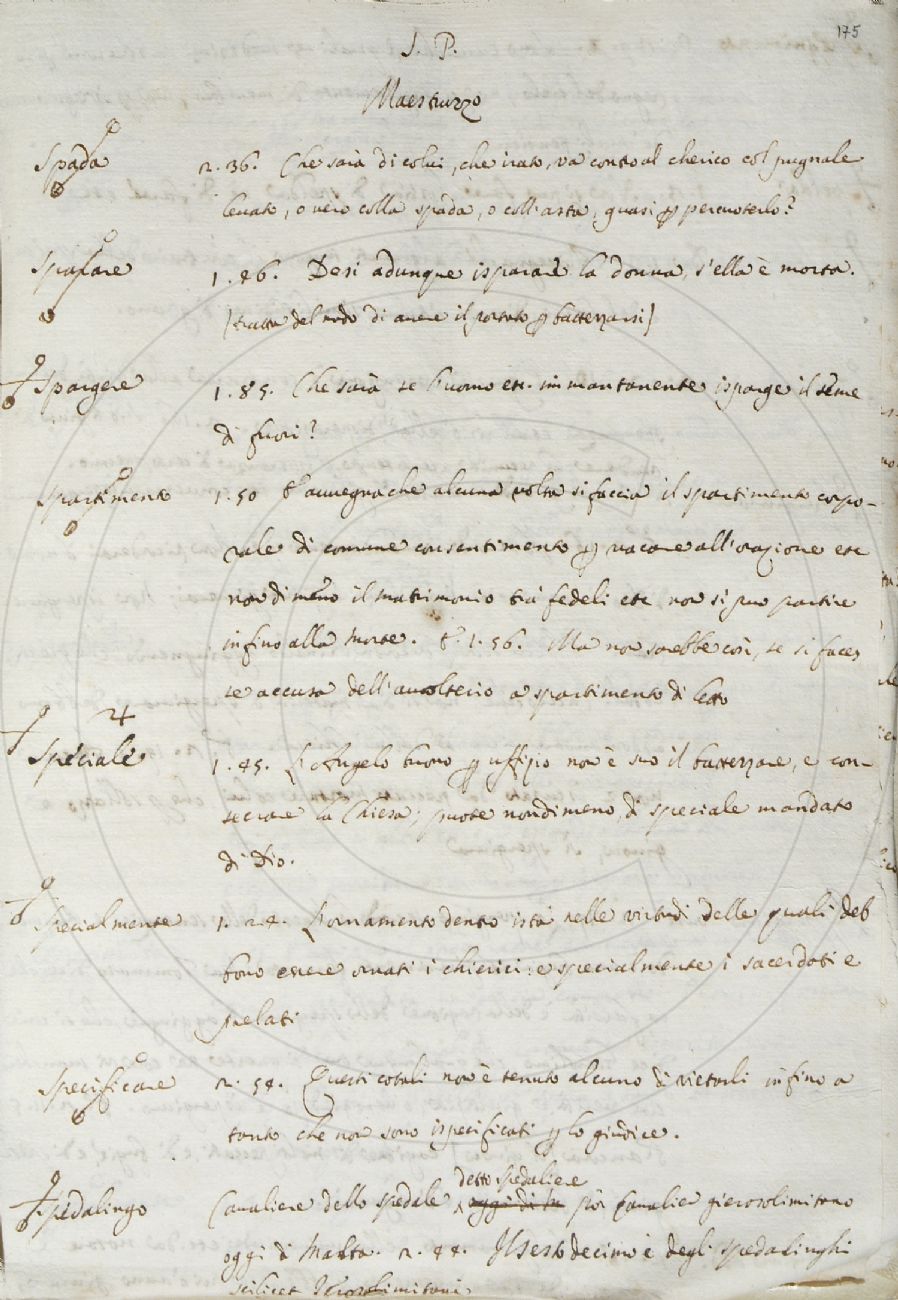 175
S. P.
Maestruzzo
Spada 2. 36. Che sarà di colui, che irato, va contro al cherico col pugnale
levato, o vero colla spada, o coll'asta, quasi p percuoterlo?
Sparare 1. 46. Desi adunque isparare la donna, s'ella è morta.
[tratta del modo di avere il portato p battezzarsi]
Spargere 1. 85. Che sarà se l'uomo etc. immantanente isparge il seme
di fuori?
Spartimento 1. 50 E avvegna che alcuna volta si faccia il spartimento corpo-
rale di comune consentimento p vacare all'orazione etc
nondimeno il matrimonio tra' fedeli etc non si può partire
infino alla morte. E 1. 56. Ma non sarebbe così, se si faces
se accusa dell'avolterio a spartimento di letto
Speciale 1. 45. L'Angelo buono p uffizio non è suo il battezzare, e con-
secrare la Chiesa; puote nondimeno di speciale mandato
di Dio.
Specialmente 1. 24. L'ornamento dentro istà nelle virtudi delle quali deb
bono essere ornati i chierici: e specialmente i sacerdoti e
prelati
Specificare 2. 54. Questi cotali non è tenuto alcuno di vietarli infino a
tanto che non sono ispecificati p lo giudice.
detto spedaliere
Spedalingo Cavaliere dello spedale poi Cavalier gierosolimitano
oggi di Malta. 2. 44. Il sesto decimo è degli spedalinghi
scilicet Ierosolimitani